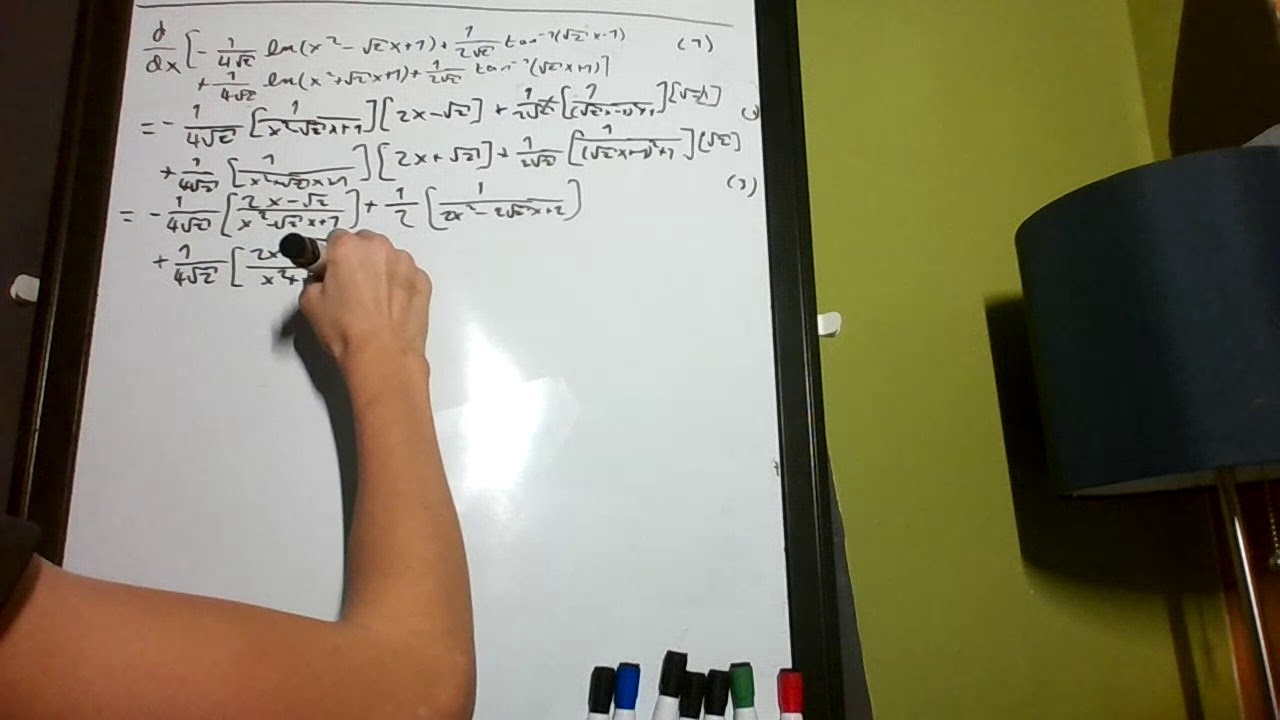 d/dx [- 1/4√2 ln(x² - √2x+1) + 1/2√2 tan⁻¹(√2x-1) (1)
+ 1/4√2 ln(x²+√2x+1) + 1/2√2 tan⁻¹(√2x+1)]
= - 1/4√2 [1/x²-√2x+1][2x-√2] + 1/2√2 [1/(√2x-1)²+1][√2]
+ 1/4√2 [1/x²+√2x+1][2x+√2] + 1/2√2 [1/(√2x+1)²+1][√2]
= - 1/4√2 [2x-√2/x²-√2x+1] + 1/2 [1/2x²-2√2x+2] (3)
+ 1/4√2 [2x/x²+